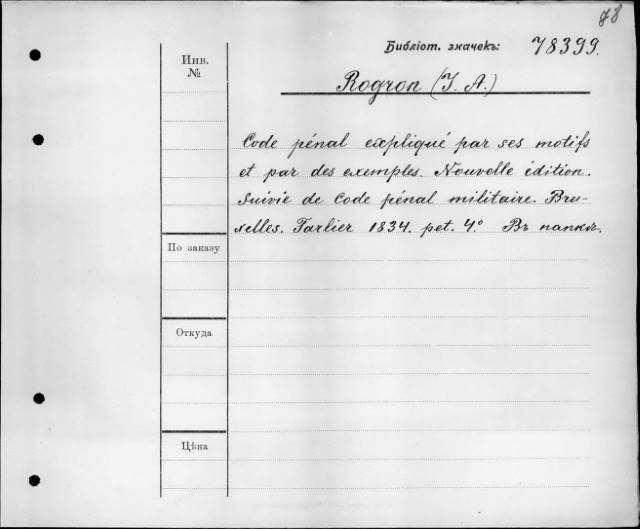 78
Библіот. значекъ: 78399.
Инв.
№
Rogron (J. A.)
Code pénal expliqué par ses motifs
et par des exemples. Nouvelle édition.
Suivie de Code pénal militaire. Bru-
xelles. Tarlier 1834. pet. 4º Въ папкѣ.
По заказу
Откуда
Цѣна